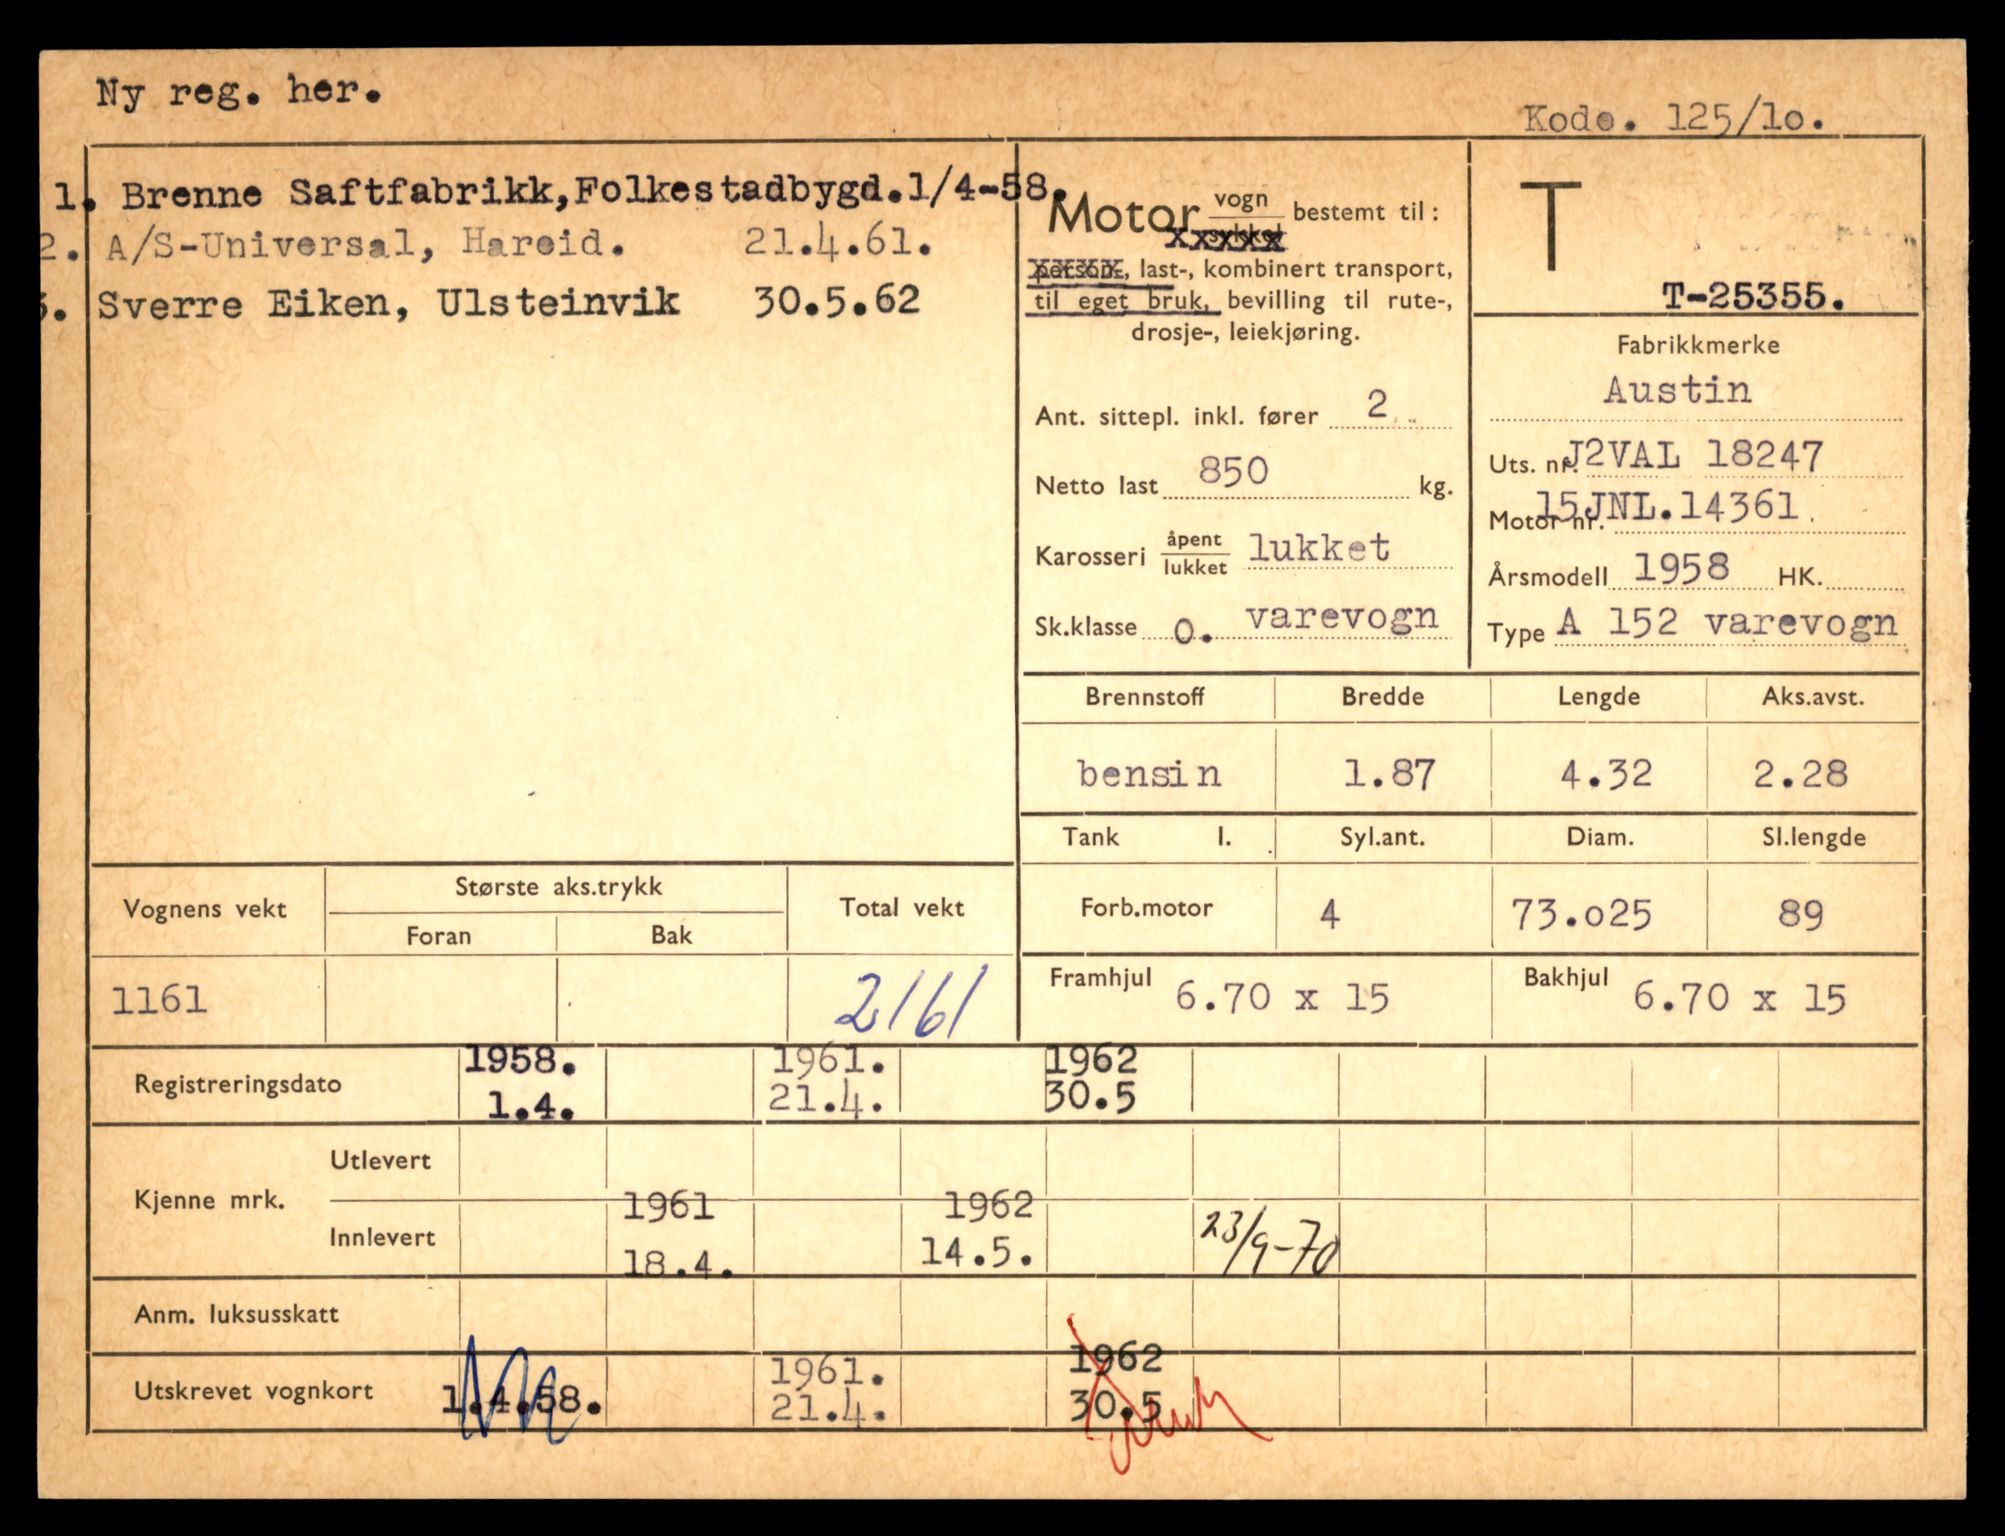 Ny reg. her.
Kode. 125/lo.
1. Brenne Saftfabrikk,Folkestadbygd.1/4-58.
2. A/S-Universal, Hareid. 21.4.61.
3. Sverre Eiken, Ulsteinvik 30.5.62
Motor vogn bestemt til:
xxxxx
person-, last-, kombinert transport,
til eget bruk, bevilling til rute-,
drosje-, leiekjøring.
Ant. sittepl. inkl. fører 2
Netto last 850 kg.
Karosseri åpent/lukket lukket
Sk.klasse o. varevogn
T
T-25355.
Fabrikkmerke
Austin
Uts. nr. J2VAL 18247
Motor nr. 15JNL.14361
Årsmodell 1958 HK.
Type A 152 varevogn
Brennstoff Bredde Lengde Aks.avst.
bensin 1.87 4.32 2.28
Tank l. Syl.ant. Diam. Sl.lengde
Forb.motor 4 73.o25 89
Framhjul 6.70 x 15 Bakhjul 6.70 x 15
Vognens vekt Største aks.trykk Total vekt
Foran Bak
1161 2161
Registreringsdato 1958. 1961. 1962
1.4. 21.4. 30.5
Kjenne mrk. Utlevert
1961 1962
Innlevert 18.4. 14.5. 23/9-70
Anm. luksusskatt
Utskrevet vognkort 1.4.58. 1961. 1962
21.4. 30.5